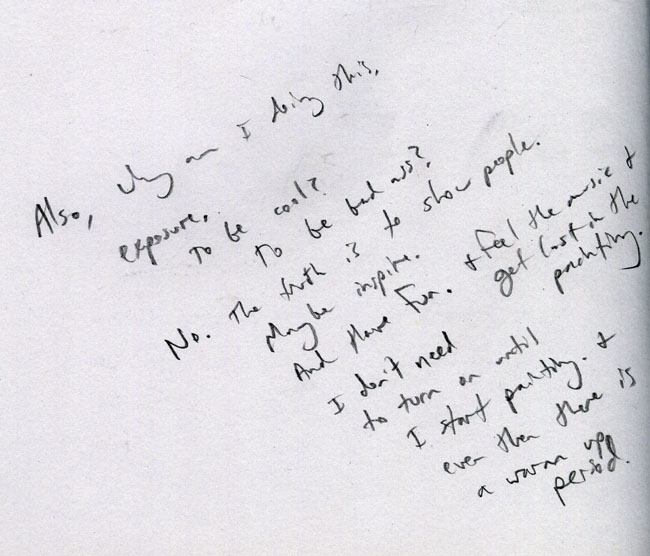 Also, why am I doing this,
exposure.
To be cool?
To be bad ass?
No. The truth is to show people.
Maybe inspire.
And Have Fun. + Feel the music +
get lost in the
painting.
I don't need
to turn on until
I start painting. +
even then there is
a warm up
period.